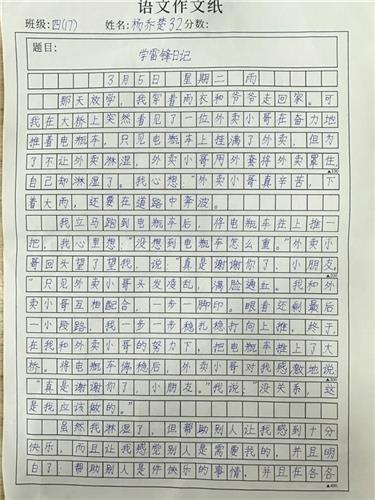 语文作文纸
班级:四(17) 姓名:杨乔楚32分数:
题目:
学雷锋日记
3月5日 星期二 雨
那天放学,我穿着雨衣和爷爷走回家。可
我在大桥上突然看见了一位外卖小哥在奋力地
推着电瓶车,只见电瓶车上挂满了外卖,但为
了不让外卖淋湿,外卖小哥用外套将外卖罩住,
自己却淋湿了。我心想“外卖小哥真辛苦,下
▲100
着大雨,还要在道路中奔波。
我立马跑到电瓶车后,将电瓶车往上推一
把,我心里想:“没想到电瓶车怎么重。”外卖小
哥回头望了望我,说:“真是谢谢你了,小朋友。
▲200
”只见外卖小哥头发凌乱,满脸通红。我和外
卖小哥互相配合,一步一脚印。眼看还剩最后
一小段路,我一步一步稳扎稳打向上推,终于
在我和外卖小哥的努力下,把电瓶车推上了大
桥。将电瓶车停稳后,外卖小哥对我感激地说
▲300
“真是谢谢你了,小朋友。”我说:“没关系,这
是我应该做的。”
虽然我淋湿了,但帮助别人让我感到十分
快乐,而且让我感觉别人是需要我的,并且明
白了:帮助别人是件快乐的事情,并且在各各
▲400